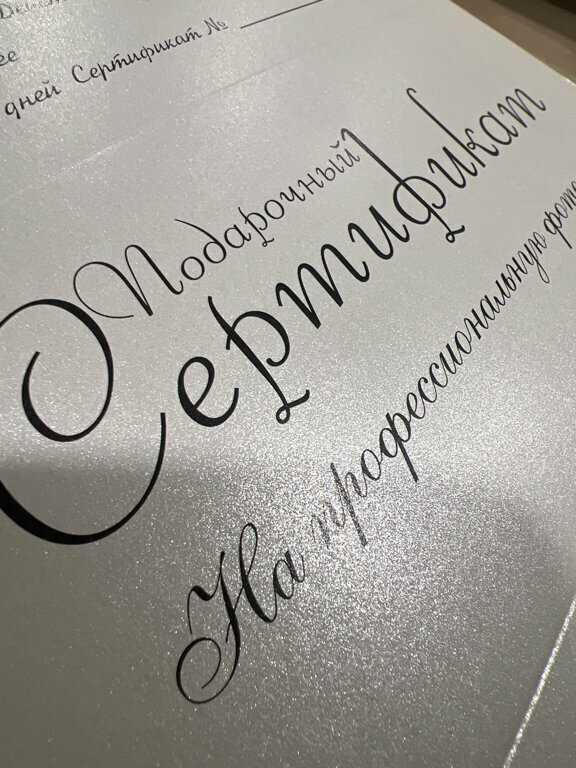 дней Сертификат № ____
Подарочный
Сертификат
На профессиональную